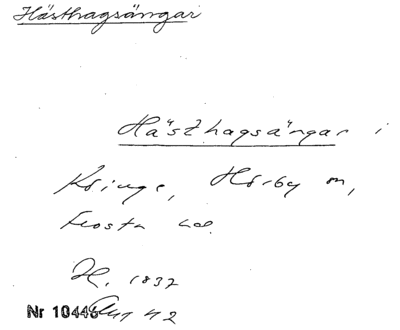 Hästhagsängar
Hästhagsängar i
Kringe, Hörby sn,
Frosta hd.
H. 1832
Nr 10446 42